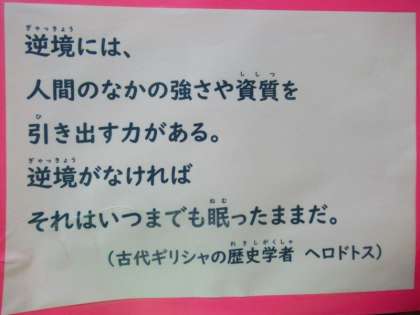 ぎゃっきょう
逆境には、
ししつ
人間のなかの強さや資質を
ひ
引き出す力がある。
ぎゃっきょう
逆境がなければ
ねむ
それはいつまでも眠ったままだ。
れきしがくしゃ
（古代ギリシャの歴史学者　ヘロドトス）